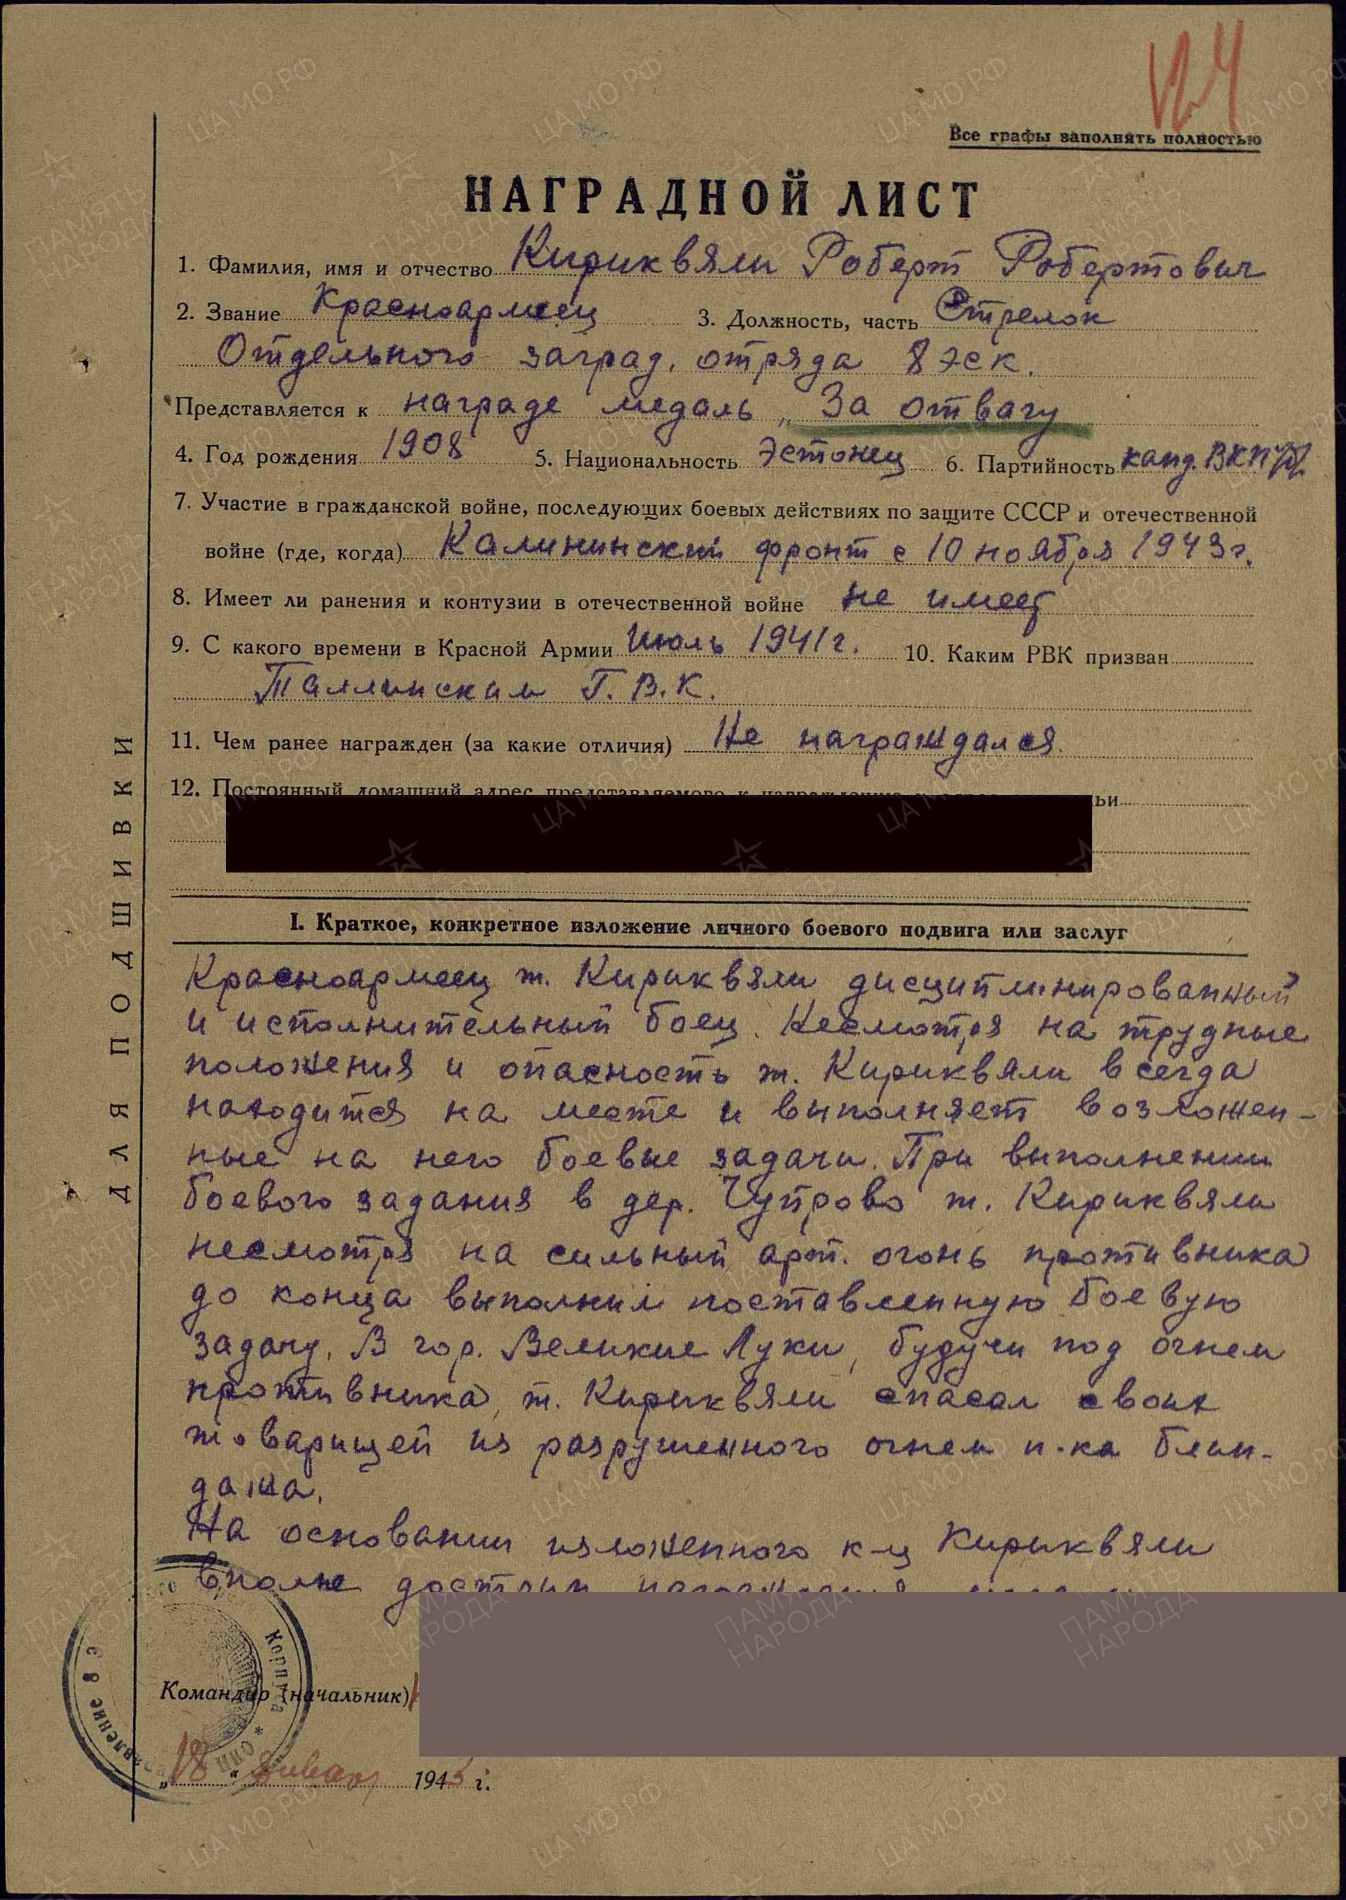 124
Все графы заполнять полностью
НАГРАДНОЙ ЛИСТ
1. Фамилия, имя и отчество Кириквяли Роберт Робертович
2. Звание Красноармеец 3. Должность, часть Стрелок
Отдельного заград. отряда 8 эск.
Представляется к награде медаль „За отвагу
4. Год рождения 1908 5. Национальность Эстонец 6. Партийность канд. ВКП/б/
7. Участие в гражданской войне, последующих боевых действиях по защите СССР и отечественной
войне (где, когда) Калининский фронт с 10 ноября 1943 г.
8. Имеет ли ранения и контузии в отечественной войне не имеет
9. С какого времени в Красной Армии Июль 1941 г. 10. Каким РВК призван
Таллинским Г.В.К.
11. Чем ранее награжден (за какие отличия) Не награждался.
12. Постоянный домашний адрес представляемого к
I. Краткое, конкретное изложение личного боевого подвига или заслуг
Красноармеец т. Кириквяли дисциплинированный
и исполнительный боец. Несмотря на трудные
положения и опасность т. Кириквяли всегда
находится на месте и выполняет возложен-
ные на него боевые задачи. При выполнении
боевого задания в дер. Чупрово т. Кириквяли
несмотря на сильный арт. огонь противника
до конца выполнил поставленную боевую
задачу. В гор. Великие Луки, будучи под огнем
противника, т. Кириквяли спасал своих
товарищей из разрушенного огнем п-ка блин-
дажа.
На основании изложенного к-ц Кириквяли
вполне достоин
Командир (начальник)
„18" января 1943 г.
ДЛЯ ПОДШИВКИ
Корпуса
ПАМЯТЬ НАРОДА
ЦА МО РФ